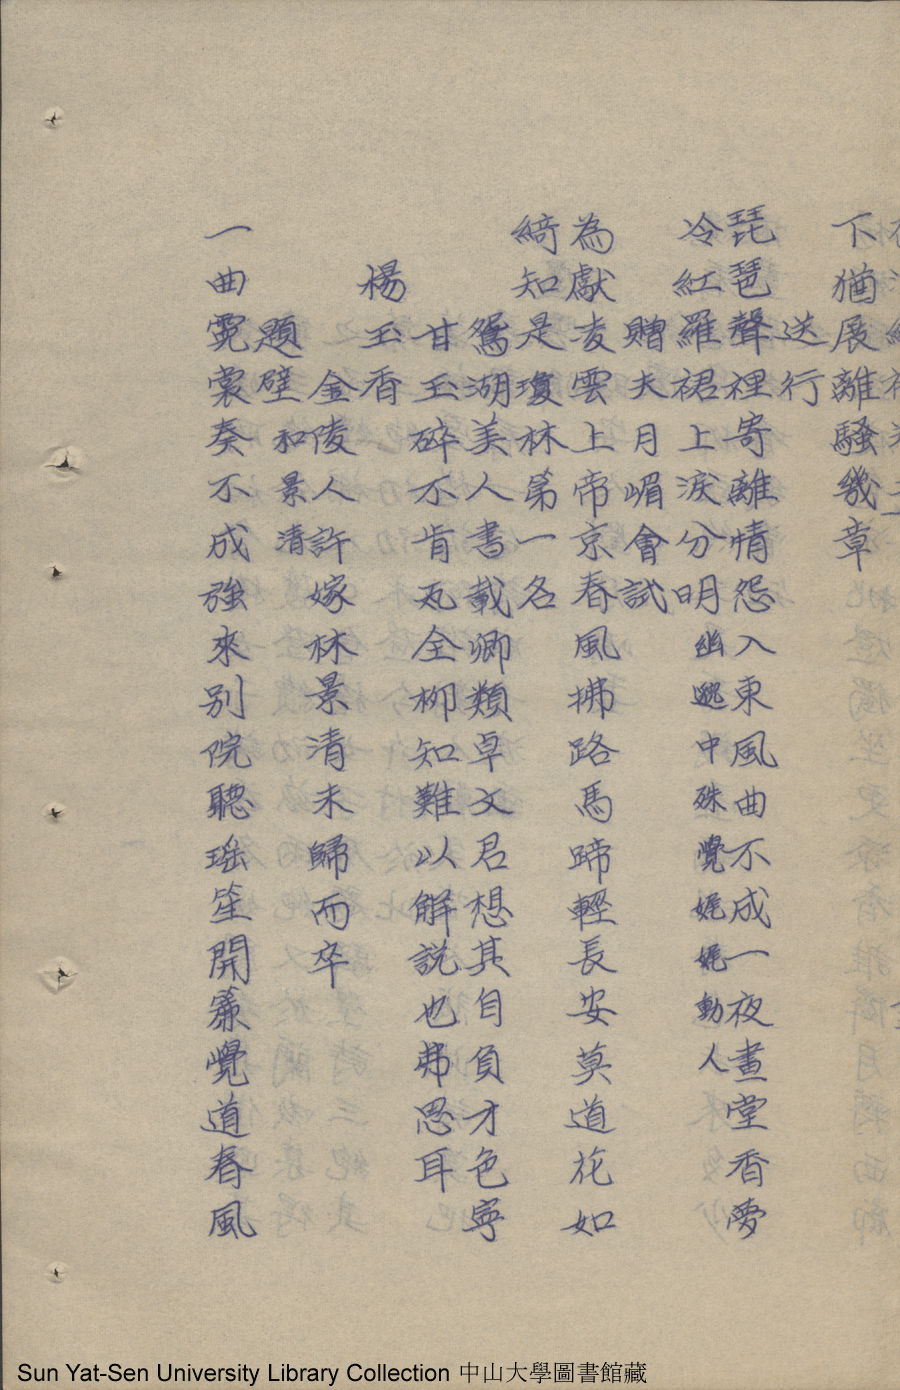 下猶展離騷幾章
送行
琵琶聲裡寄離情怨入東風曲不成一夜畫堂香夢
冷紅羅裙上淚分明幽𨓏中殊覺娓娓動人
贈夫月嵋會試
為獻麦雲上帝京春風拂路馬蹄輕長安莫道花如
綺知是瓊林第一名
鴛湖美人書載卿類卓文君想其自負才色寧
甘玉碎不肯瓦全柳知難以解說也弗恩耳
楊玉香
金陵人許嫁林景清未歸而卒
題壁和景清
一曲霓裳奏不成強來別院聽瑶笙開簾覺道春風
Sun Yat-Sen University Library Collection 中山大學圖書館藏